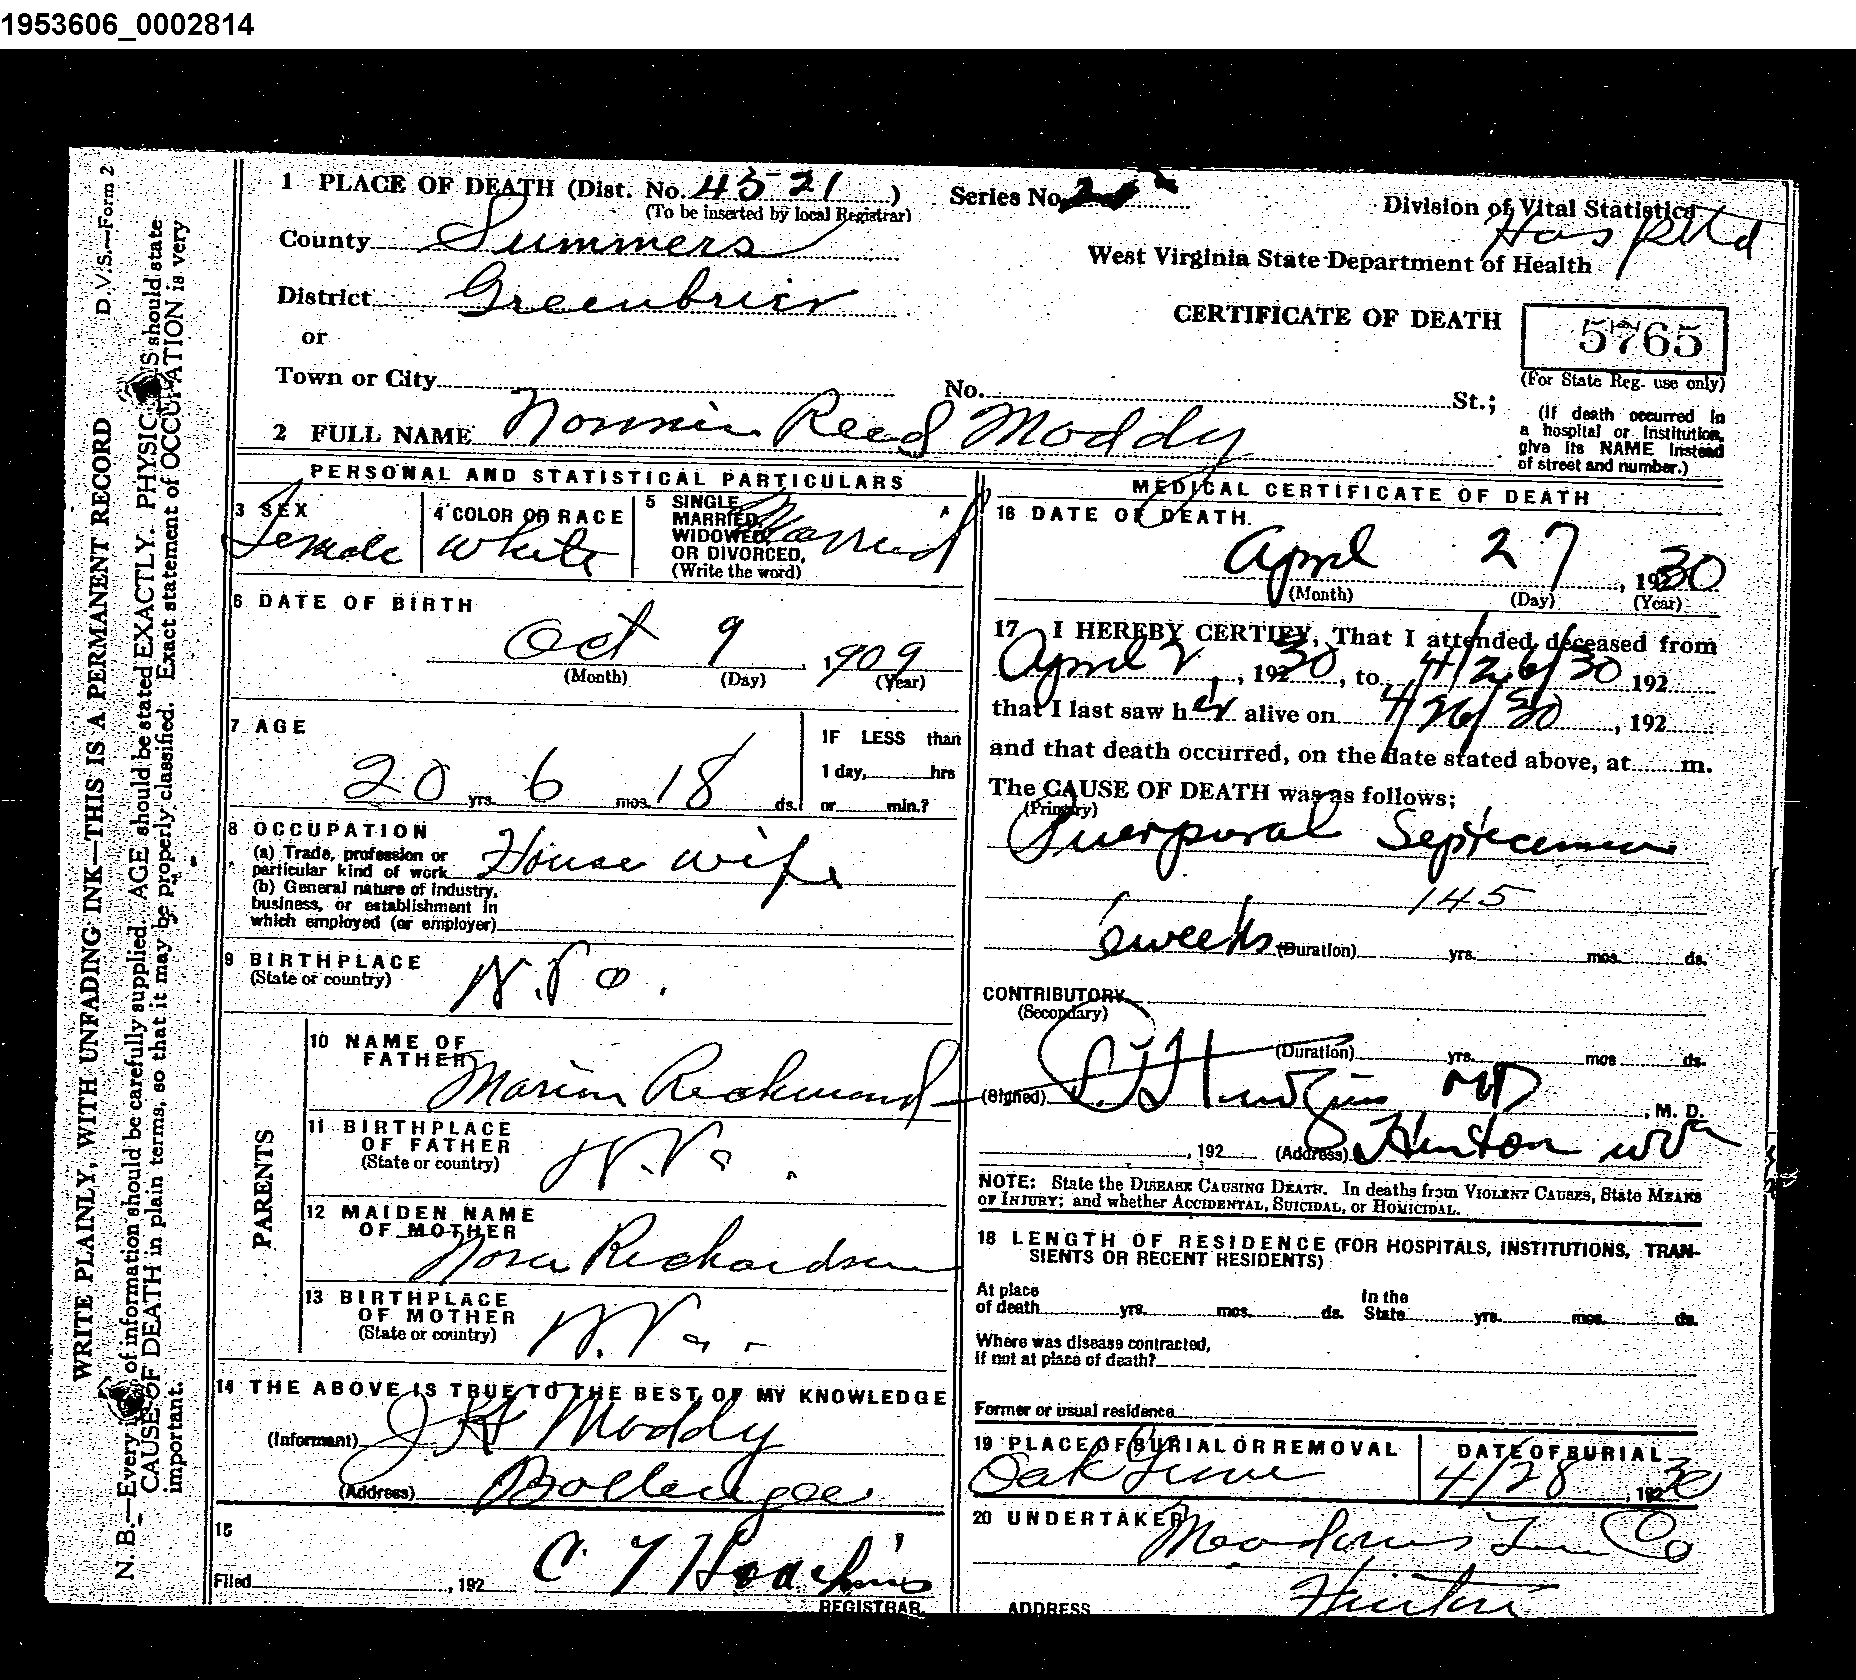 1953606_0002814
1 PLACE OF DEATH (Dist. No. 4521 ) Series No.
(To be inserted by local Registrar)
Division of Vital Statistics
Hospital
County Summers
West Virginia State Department of Health
District Greenbrier
CERTIFICATE OF DEATH 5765
or
(For State Reg. use only)
Town or City No. St.;
(If death occurred in a hospital or institution, give its NAME instead of street and number.)
2 FULL NAME Reed Moddy
PERSONAL AND STATISTICAL PARTICULARS
3 SEX Female
4 COLOR OR RACE White
5 SINGLE, MARRIED, WIDOWED, OR DIVORCED, (Write the word) Married
6 DATE OF BIRTH
Oct 9, 1909
(Month) (Day) (Year)
7 AGE
20 yrs. 6 mos. 18 ds.
IF LESS than
1 day, hrs
or min.?
8 OCCUPATION
(a) Trade, profession or particular kind of work House wife
(b) General nature of industry, business, or establishment in which employed (or employer)
9 BIRTHPLACE
(State or country)
PARENTS
10 NAME OF FATHER Marion Richmond
11 BIRTHPLACE OF FATHER
(State or country) W. Va.
12 MAIDEN NAME OF MOTHER Nora Richardson
13 BIRTHPLACE OF MOTHER
(State or country) W. Va.
14 THE ABOVE IS TRUE TO THE BEST OF MY KNOWLEDGE
(Informant) J H Moddy
(Address)
15
Filed , 192
REGISTRAR.
MEDICAL CERTIFICATE OF DEATH
16 DATE OF DEATH.
April 27, 1930
(Month) (Day) (Year)
17 I HEREBY CERTIFY, That I attended deceased from
April 2, 1930, to 4/26/30 192
that I last saw her alive on 4/26/30, 192
and that death occurred, on the date stated above, at m.
The CAUSE OF DEATH was as follows;
(Primary)
Puerperal Septicemia
145
weeks (Duration) yrs. mos. ds.
CONTRIBUTORY
(Secondary)
(Duration) yrs. mos. ds.
(Signed) MD , M. D.
, 192 (Address) Hinton WVa
NOTE: State the DISEASE CAUSING DEATH. In deaths from VIOLENT CAUSES, State MEANS
OF INJURY; and whether ACCIDENTAL, SUICIDAL, or HOMICIDAL.
18 LENGTH OF RESIDENCE (FOR HOSPITALS, INSTITUTIONS, TRAN-
SIENTS OR RECENT RESIDENTS)
At place of death yrs. mos. ds. In the State yrs. mos. ds.
Where was disease contracted,
if not at place of death?
Former or usual residence
19 PLACE OF BURIAL OR REMOVAL DATE OF BURIAL
Oak Grove 4/28, 1930
20 UNDERTAKER
Meadows Co
ADDRESS Hinton
D.V.S.—Form 2
WRITE PLAINLY, WITH UNFADING INK—THIS IS A PERMANENT RECORD
N. B.—Every of information should be carefully supplied. AGE should be stated EXACTLY. PHYSICIANS should state
CAUSE OF DEATH in plain terms, so that it may be properly classified. Exact statement of OCCUPATION is very
important.